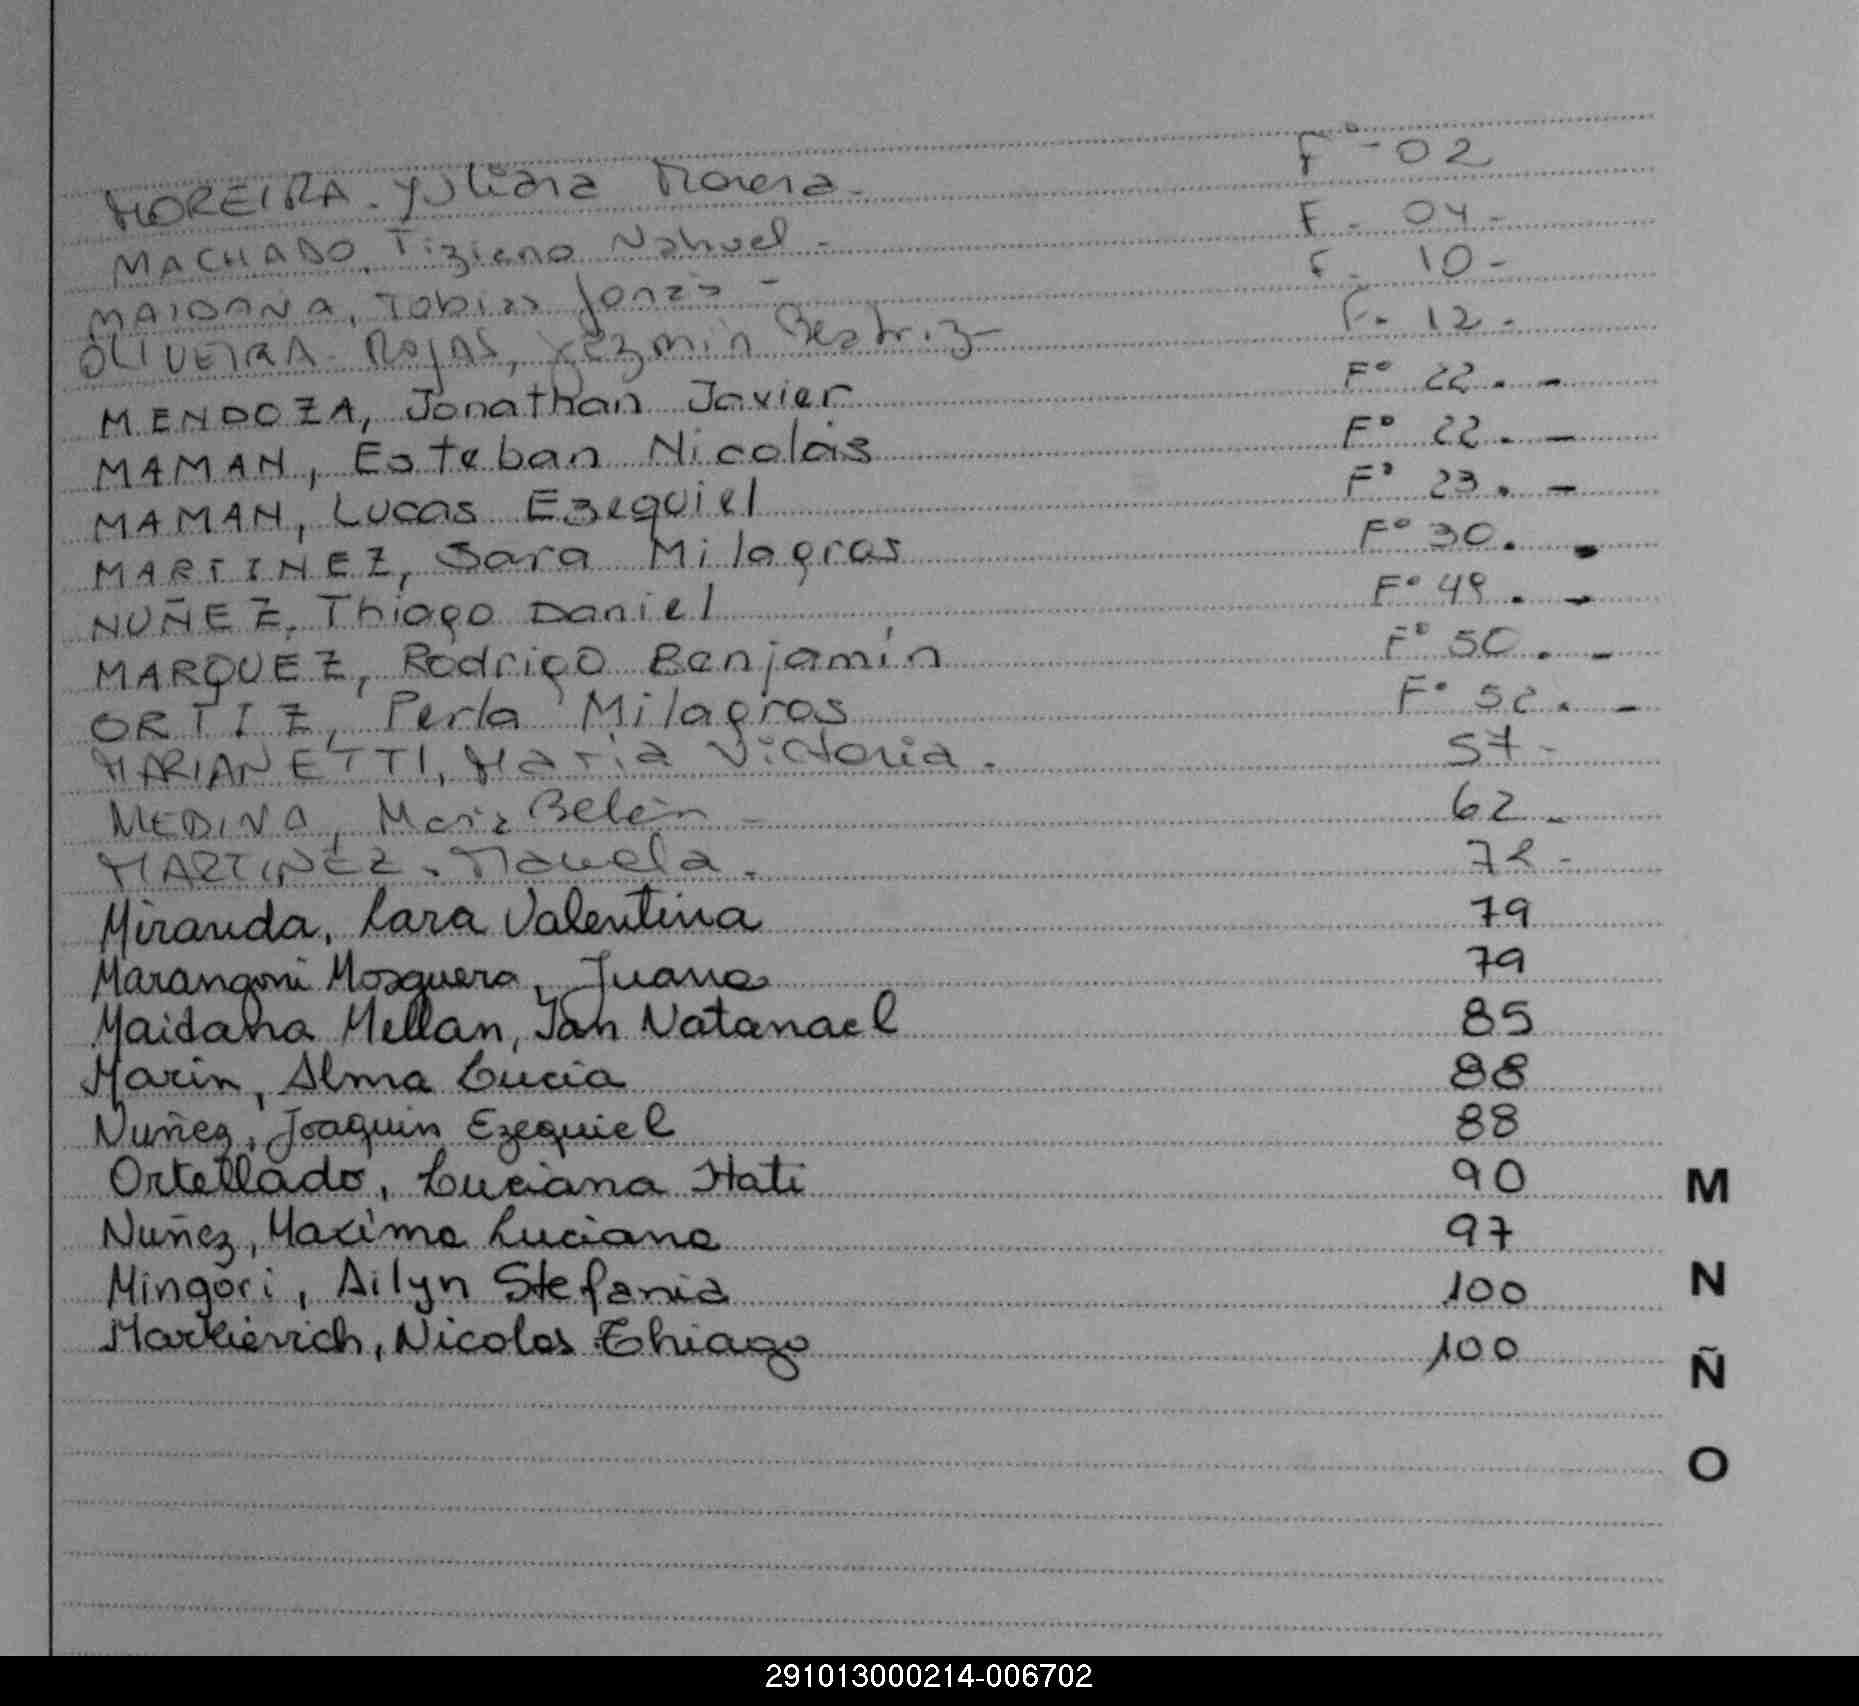 MOREIRA. Yuliana Morena. F° - 02
MACHADO, Tiziano Nahuel - F - 04 -
MAIDANA, Tobias Jonás - F - 10 -
OLIVEIRA - ROJAS, Yazmin Beatriz - F. 12 -
MENDOZA, Jonathan Javier F° 22. -
MAMAN, Esteban Nicolás F° 22. -
MAMAN, Lucas Ezequiel F° 23. -
MARTINEZ, Sara Milagros F° 30. -
NUÑEZ, Thiago Daniel F° 49. -
MARQUEZ, Rodrigo Benjamín F° 50. -
ORTIZ, Perla Milagros F° 52. -
MARIANETTI, Maria Victoria. 57 -
MEDINA, Maria Belén - 62 -
MARTINEZ. 72 -
Miranda, Lara Valentina 79
Marangoni Mosquera, Juana 79
Maidana Mellan, Ian Natanael 85
Marin, Alma Lucia 88
Nuñez, Joaquin Ezequiel 88
Ortellado, Luciana Hati 90
Nuñez, Maximo Luciano 97
Mingori, Ailyn Stefania 100
Markievich, Nicolas Thiago 100
M
N
Ñ
O
291013000214-006702